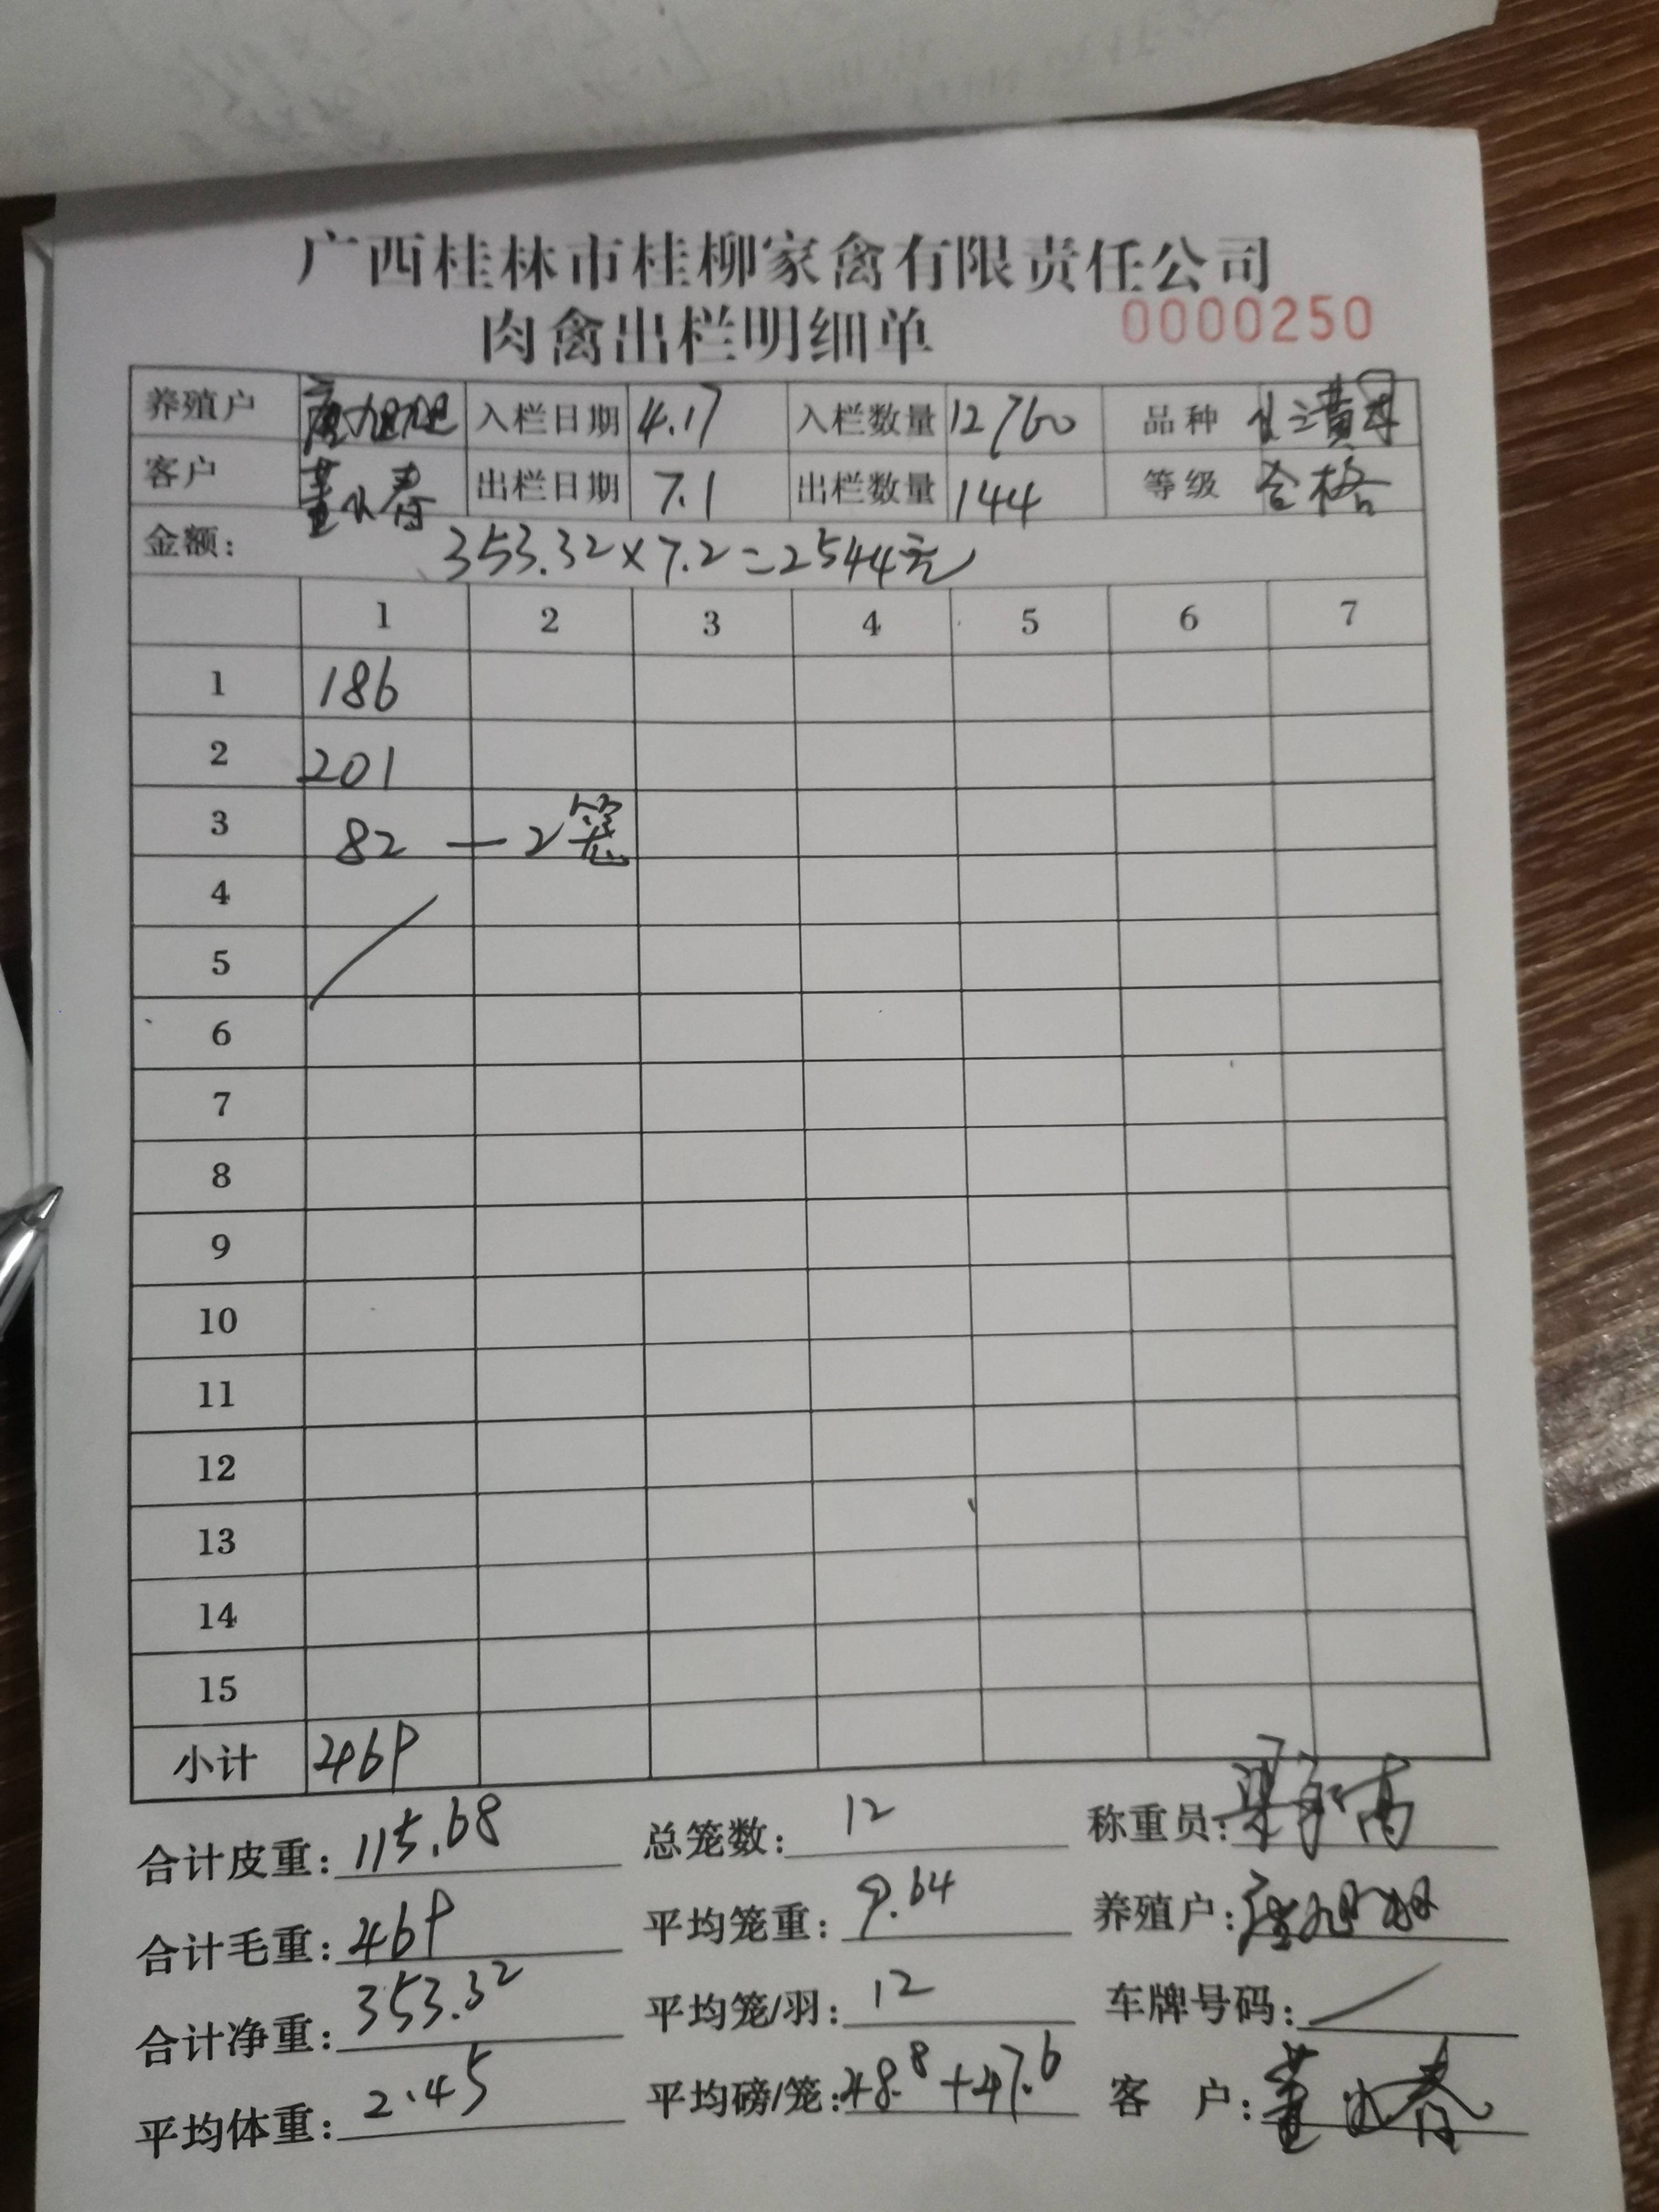 广西桂林市桂柳家禽有限责任公司
肉禽出栏明细单 0000250
养殖户 入栏日期 4.17 入栏数量 12760 品种
客户 董 春 出栏日期 7.1 出栏数量 144 等级 合格
金额: 353.32×7.2=2544元
1 2 3 4 5 6 7
1 186
2 201
3 82 — 2笼
4
5
6
7
8
9
10
11
12
13
14
15
小计 469
合计皮重: 115.68 总笼数: 12 称重员: 梁
合计毛重: 469 平均笼重: 9.64 养殖户:
合计净重: 353.32 平均笼/羽: 12 车牌号码: /
平均体重: 2.45 平均磅/笼: 48.8+47.6 客 户: 董 春